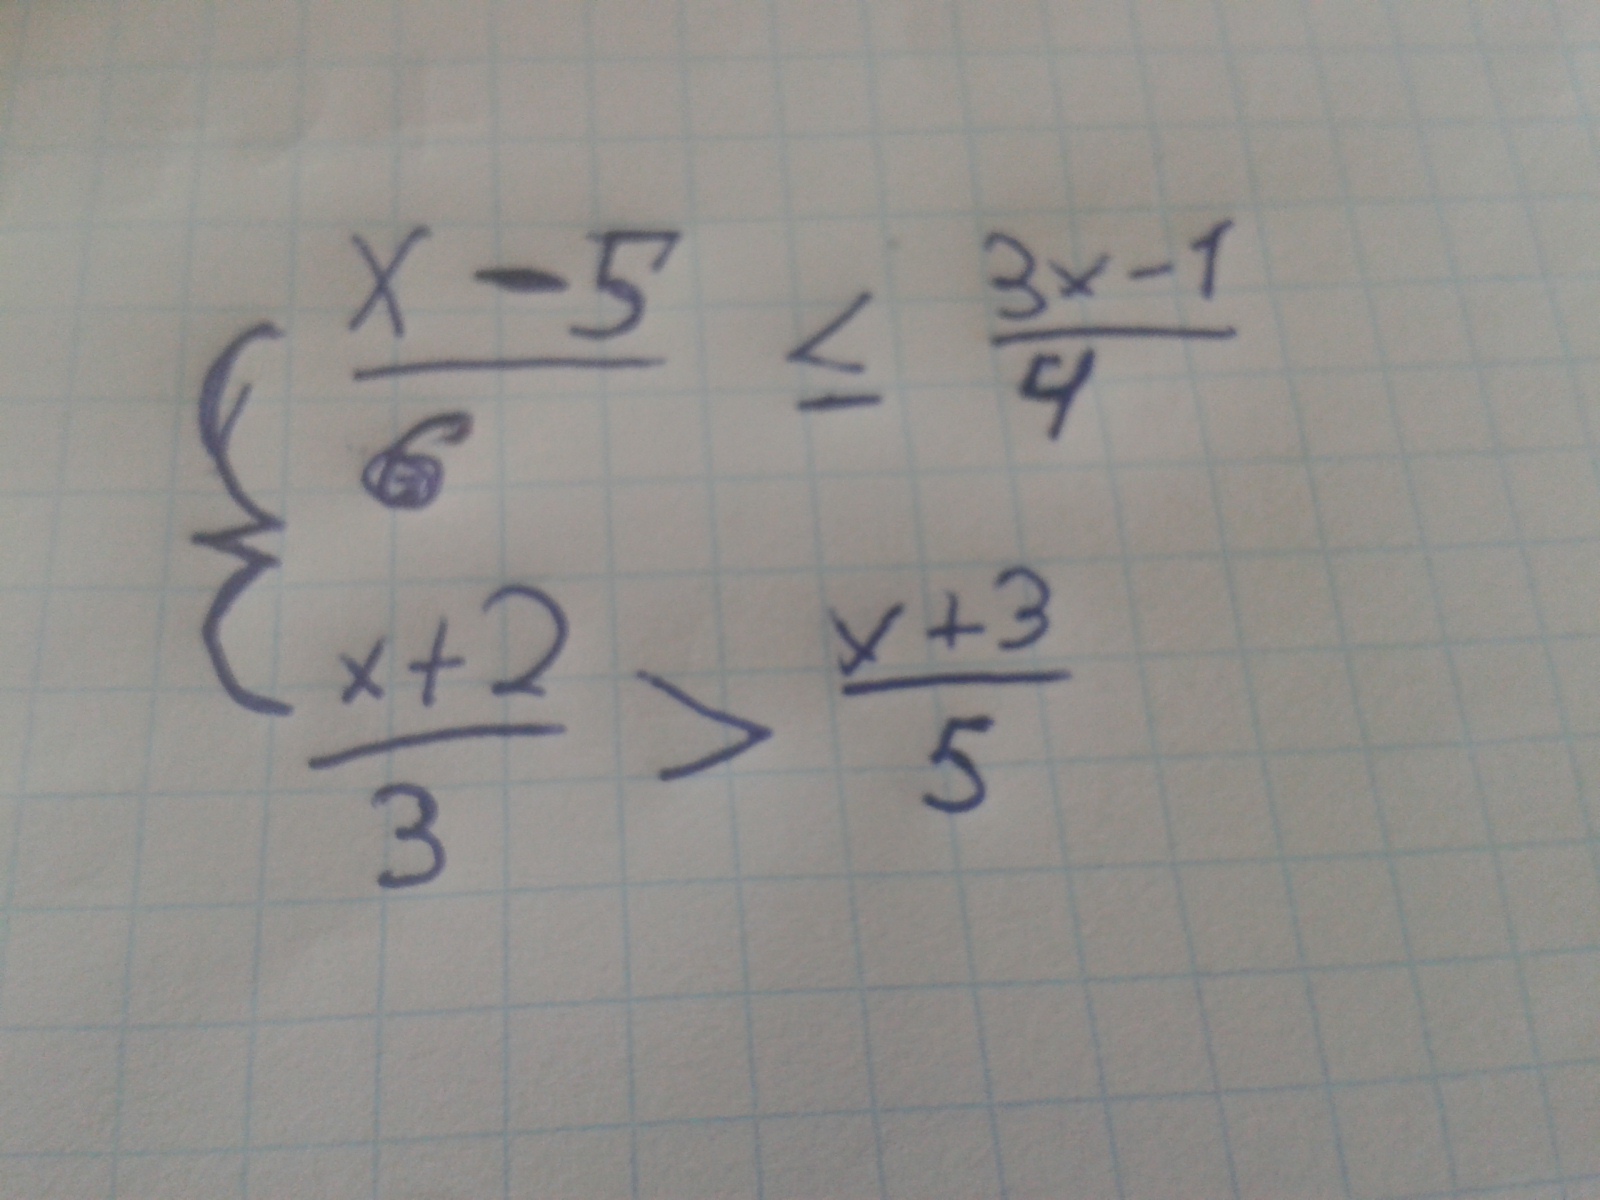 x - 5 / 6 ≤ 3x - 1 / 4
x + 2 / 3 > x + 3 / 5